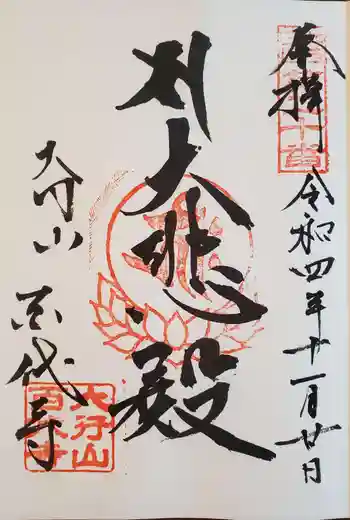 奉拝
令和四年十一月廿日
大悲殿
大行山
百代寺
大行山
百代寺